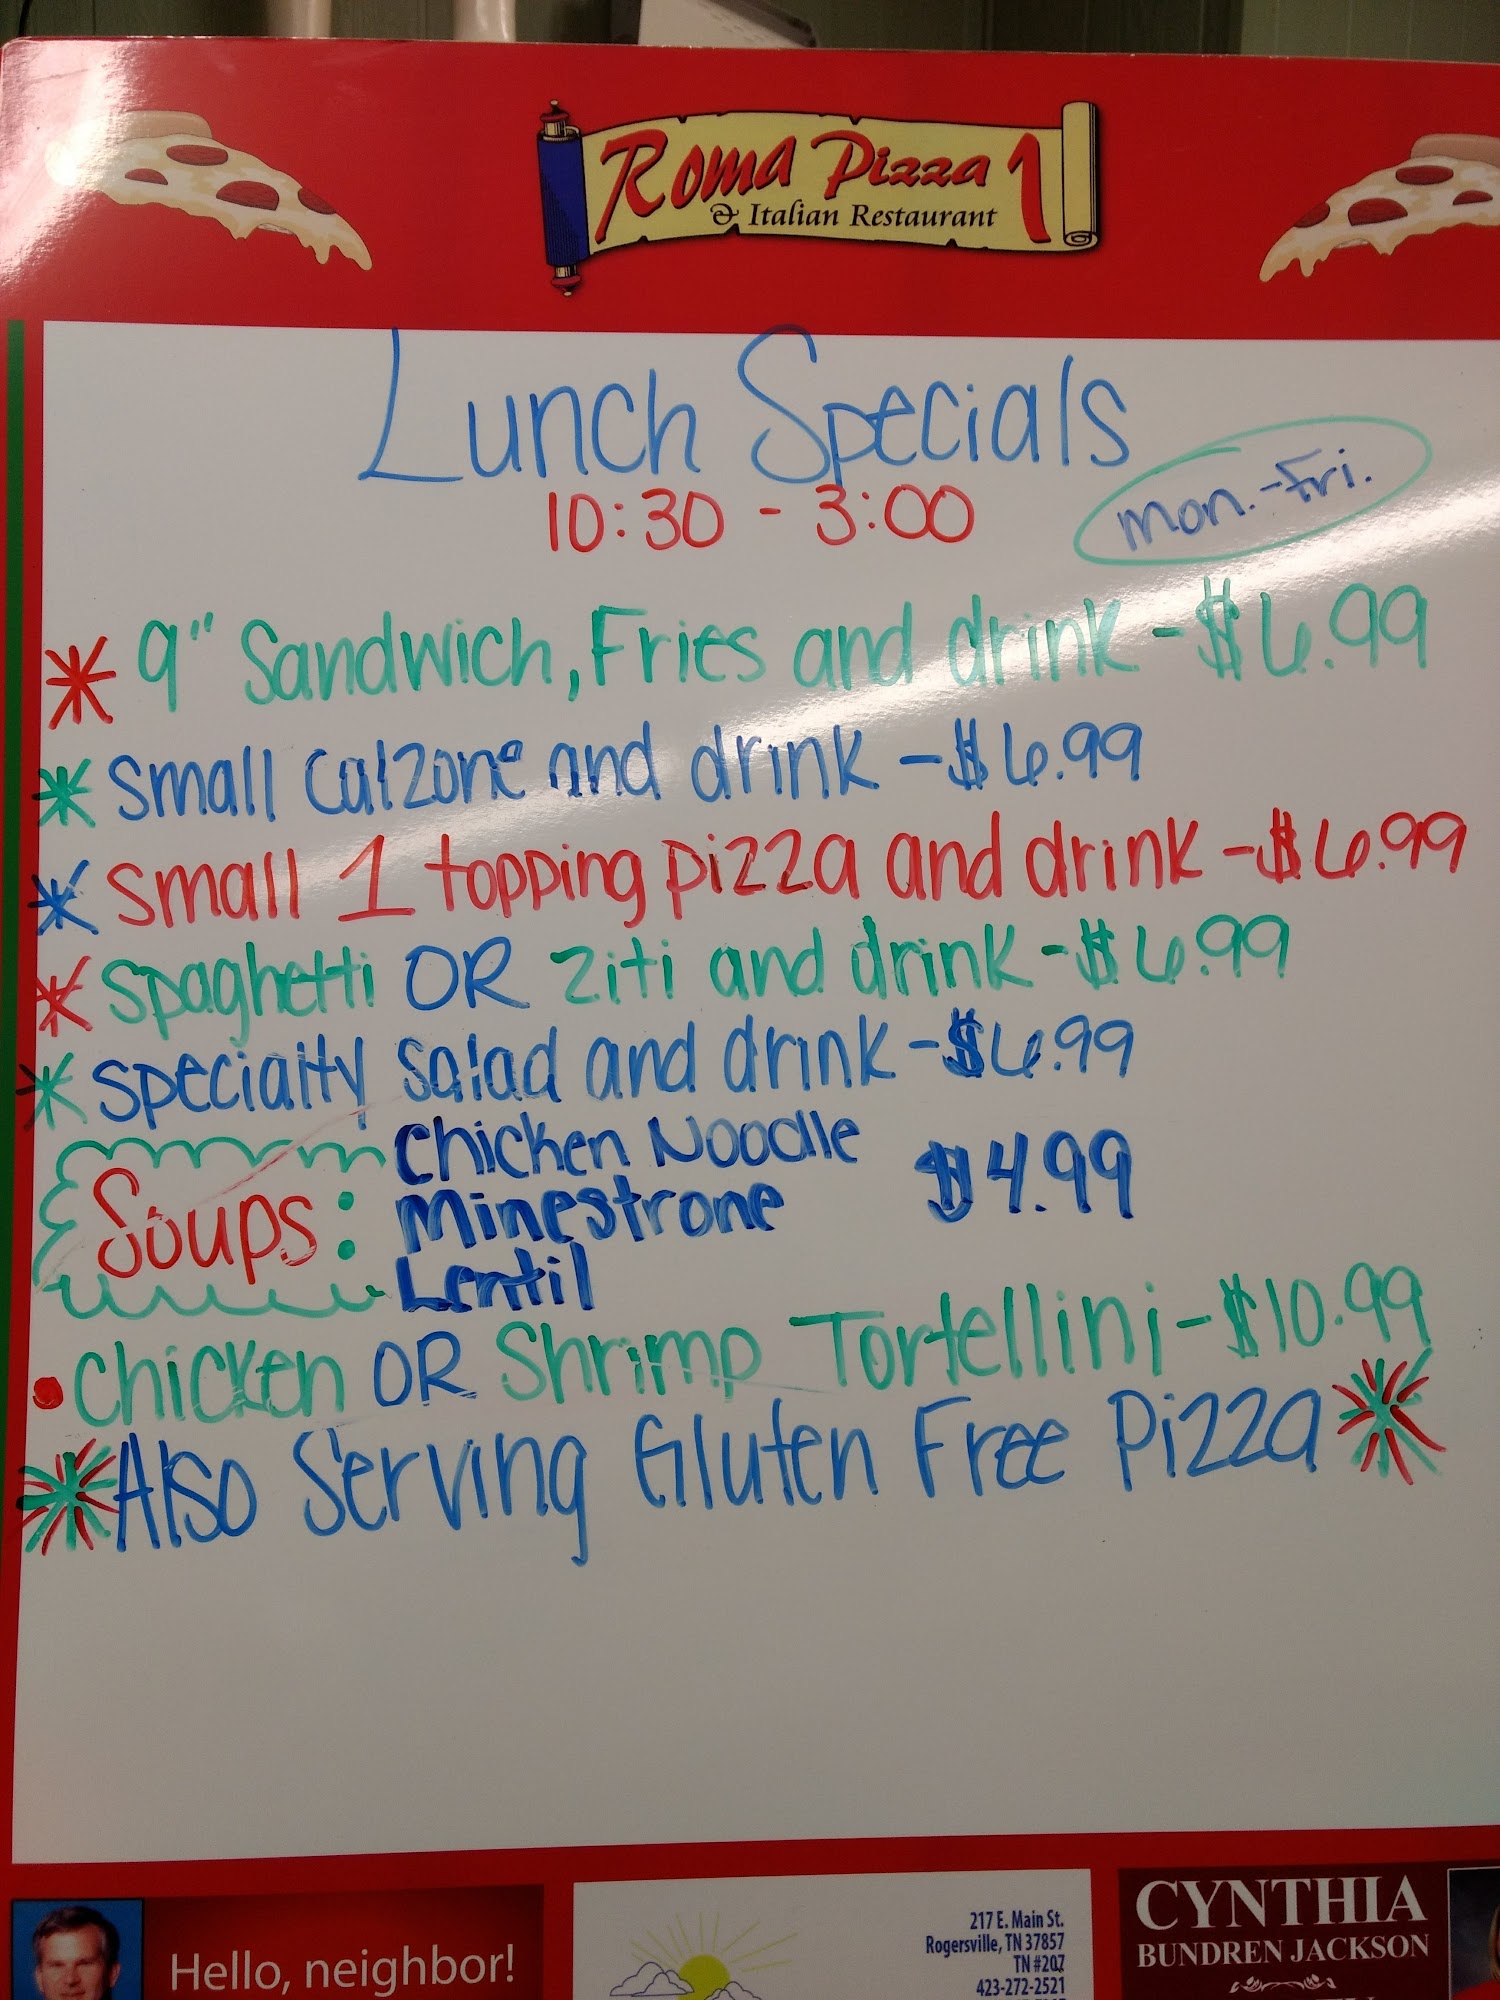 Roma Pizza 1
& Italian Restaurant
Lunch Specials
10:30 - 3:00
Mon.-Fri.
9" Sandwich, Fries and drink - $6.99
Small Calzone and drink - $6.99
Small 1 topping pizza and drink - $6.99
Spaghetti OR Ziti and drink - $6.99
Specialty Salad and drink - $6.99
Soups: Chicken Noodle $4.99
Minestrone
Lentil
Chicken OR Shrimp Tortellini - $10.99
Also Serving Gluten Free Pizza
Hello, neighbor!
217 E. Main St.
Rogersville, TN 37857
TN #207
423-272-2521
CYNTHIA
BUNDREN JACKSON